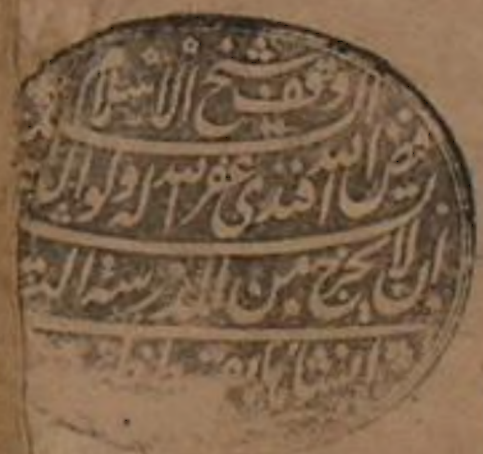 وقف شيخ الاسلام
فيض الله افندى غفر الله له ولوالد
ان لا يخرج من المدرسة الت
انشاها بقسط